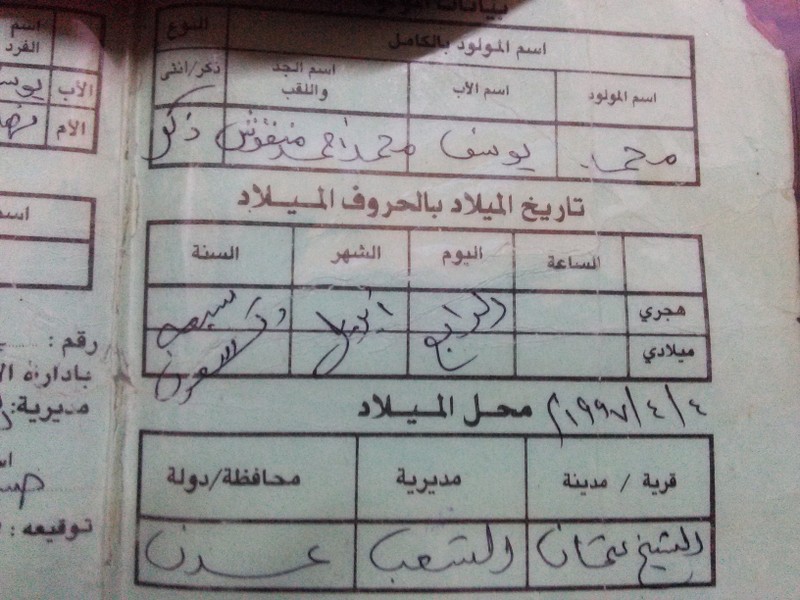 بيانات المولود
اسم المولود بالكامل النوع
اسم المولود اسم الأب اسم الجد واللقب ذكر/انثى
محمد يوسف محمد احمد منقوش ذكر
تاريخ الميلاد بالحروف الميلاد
الساعة اليوم الشهر السنة
هجري
ميلادي الرابع ابريل سبعه وتسعون
٤/٤/١٩٩٧م محل الميلاد
قرية / مدينة مديرية محافظة/دولة
الشيخ عثمان الشعب عدن
اسم الفرد
الأب
الأم
رقم :
مديرية:
توقيعه :